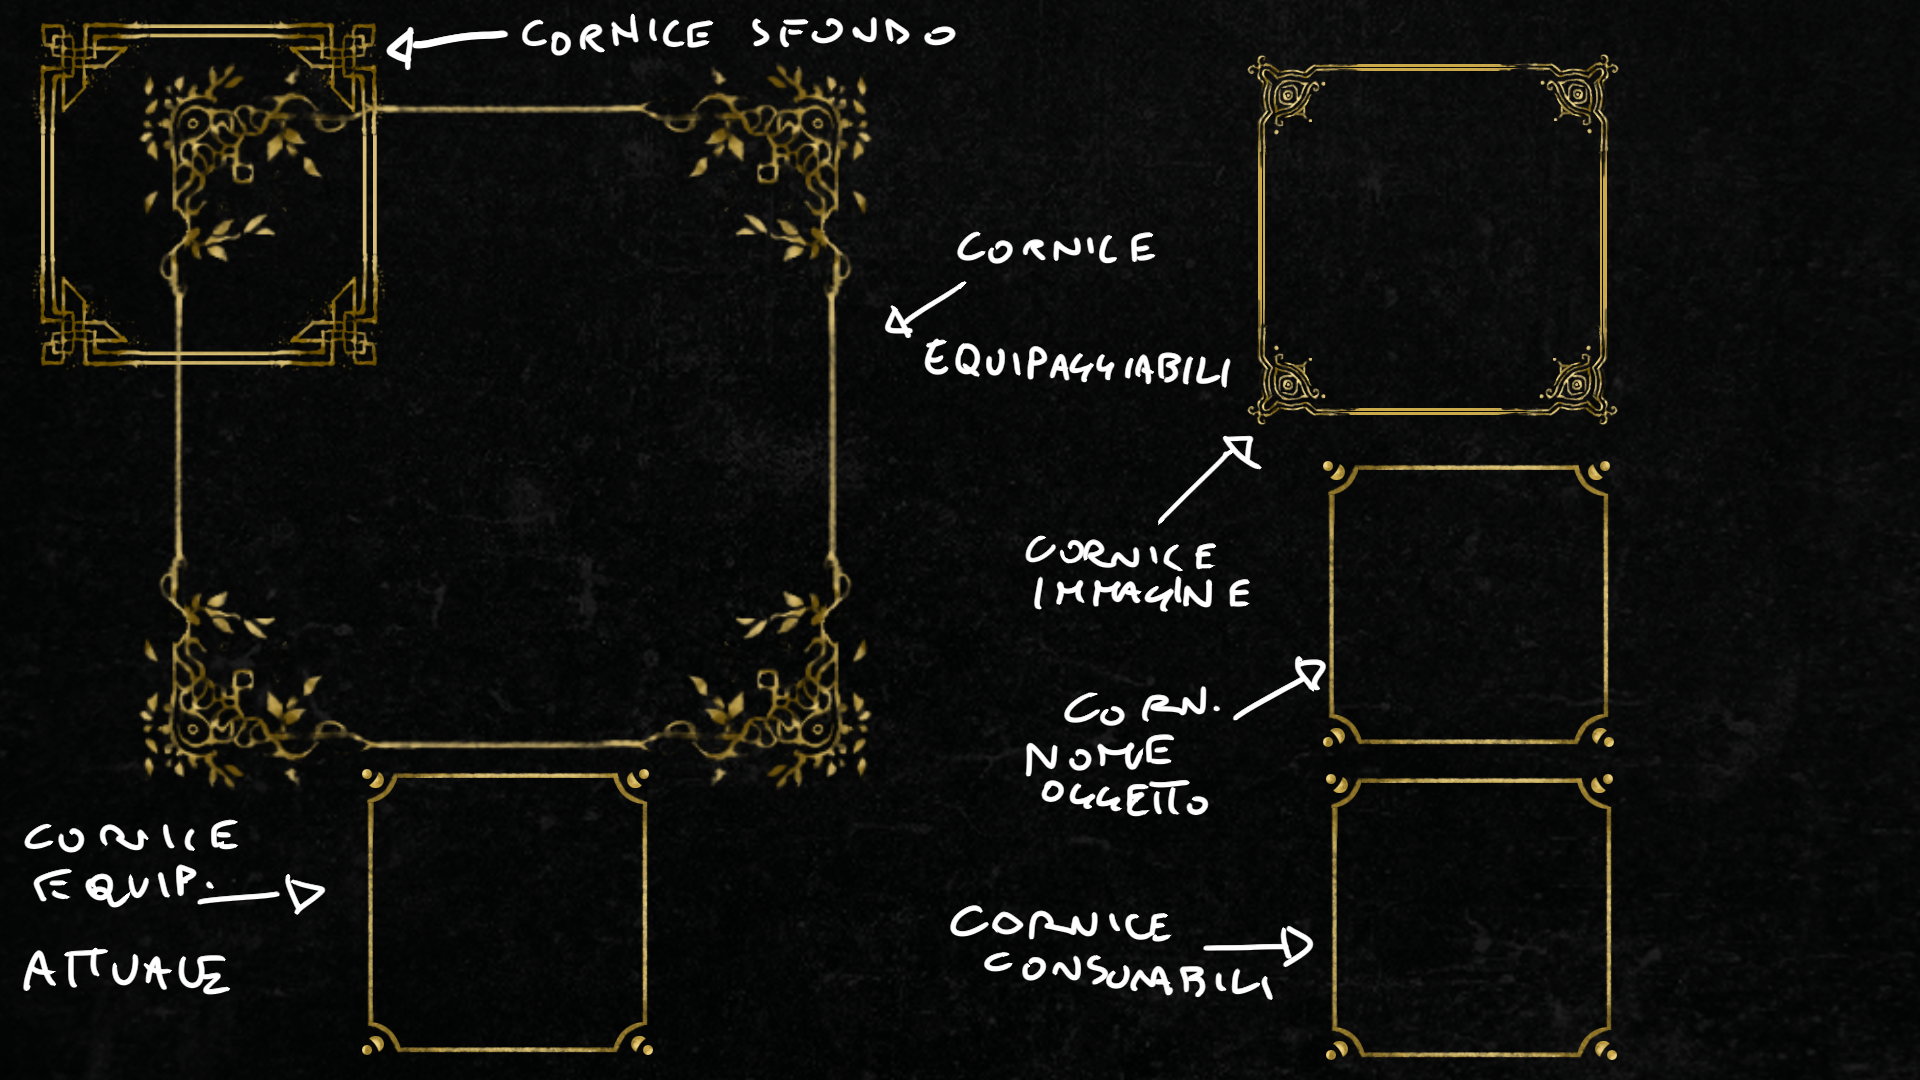 CORNICE SFONDO
CORNICE
EQUIPAGGIABILI
CORNICE
IMMAGINE
CORN.
NOME
OGGETTO
CORNICE
EQUIP.
ATTUALE
CORNICE
CONSUMABILI